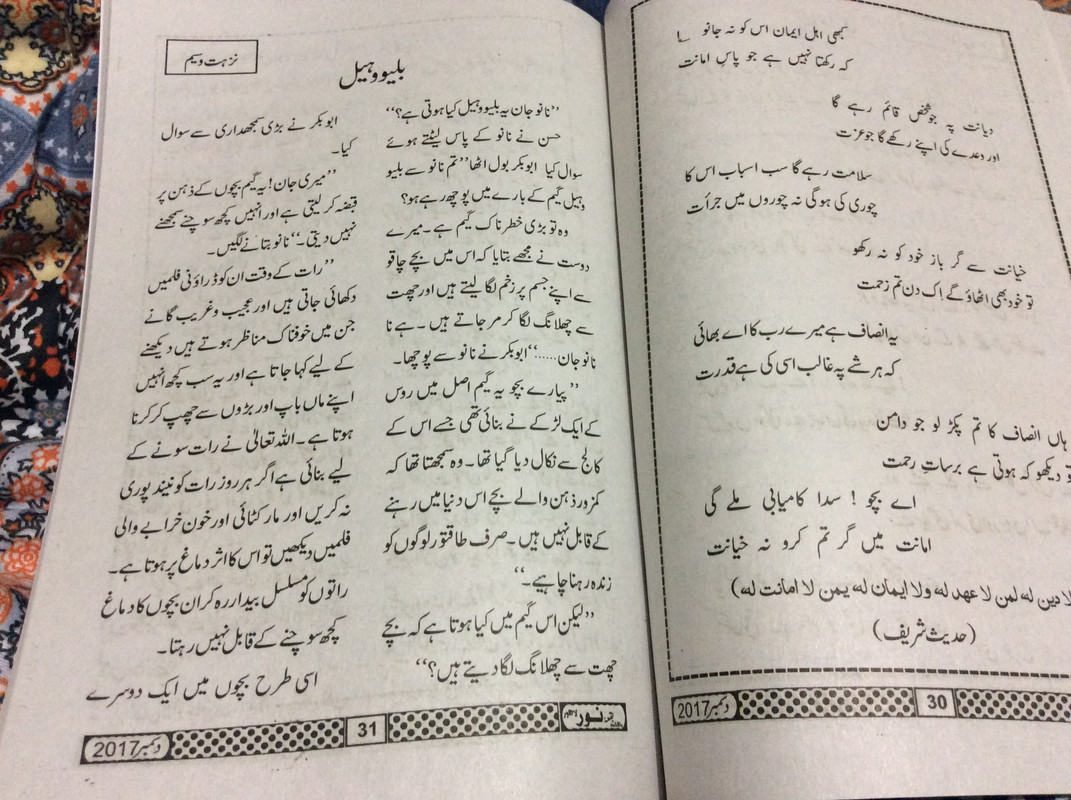 کبھی اہل ایمان اس کو نہ جانو
کہ رکھتا نہیں ہے جو پاسِ امانت
دیانت پہ جو شخص قائم رہے گا
اور وعدے کی اپنے رکھے گا جو عزت
سلامت رہے گا سب اسباب اس کا
چوری کی ہوگی نہ چوروں میں جرأت
خیانت سے گر باز خود کو نہ رکھو
تو خود بھی اٹھاؤ گے اِک دن تم زحمت
یہ انصاف ہے میرے رب کا اے بھائی
کہ ہر شے پہ غالب اسی کی ہے قدرت
ہاں انصاف کا تم پکڑ لو جو دامن
تو دیکھو کہ ہوتی ہے برساتِ رحمت
اے بچو ! سدا کامیابی ملے گی
امانت میں گر تم کرو نہ خیانت
لا دين له لمن لا عهد له ولا ايمان له يمن لا امانت له)
(حدیث شریف)
دسمبر 2017
30
نزہت وسیم
بلیو وہیل
’’نانو جان یہ بلیو وہیل کیا ہوتی ہے؟‘‘
حسن نے نانو کے پاس لیٹتے ہوئے
سوال کیا ابوبکر بول اٹھا ’’تم نانو سے بلیو
وہیل گیم کے بارے میں پوچھ رہے ہو؟
وہ تو بڑی خطرناک گیم ہے۔ میرے
دوست نے مجھے بتایا کہ اس میں بچے چاقو
سے اپنے جسم پر زخم لگا لیتے ہیں اور چھت
سے چھلانگ لگا کر مر جاتے ہیں۔ ہے نا
نانو جان.....‘‘ ابوبکر نے نانو سے پوچھا۔
’’پیارے بچو یہ گیم اصل میں روس
کے ایک لڑکے نے بنائی تھی جسے اس کے
کالج سے نکال دیا گیا تھا۔ وہ سمجھتا تھا کہ
کمزور ذہن والے بچے اس دنیا میں رہنے
کے قابل نہیں ہیں۔ صرف طاقتور لوگوں کو
زندہ رہنا چاہیے۔‘‘
’’لیکن اس گیم میں کیا ہوتا ہے کہ بچے
چھت سے چھلانگ لگا دیتے ہیں؟‘‘
ابوبکر نے بڑی سمجھداری سے سوال
کیا۔
’’میری جان! یہ گیم بچوں کے ذہن پر
قبضہ کر لیتی ہے اور انہیں کچھ سوچنے سمجھنے
نہیں دیتی۔‘‘ نانو بتانے لگیں۔
’’رات کے وقت ان کو ڈراؤنی فلمیں
دکھائی جاتی ہیں اور عجیب و غریب گانے
جن میں خوفناک مناظر ہوتے ہیں دیکھنے
کے لیے کہا جاتا ہے اور یہ سب کچھ انہیں
اپنے ماں باپ اور بڑوں سے چھپ کر کرنا
ہوتا ہے۔ اللہ تعالیٰ نے رات سونے کے
لیے بنائی ہے اگر ہر روز رات کو نیند پوری
نہ کریں اور مار کٹائی اور خون خرابے والی
فلمیں دیکھیں تو اس کا اثر دماغ پر ہوتا ہے۔
راتوں کو مسلسل بیدار رہ کر ان بچوں کا دماغ
کچھ سوچنے کے قابل نہیں رہتا۔
اسی طرح بچوں میں ایک دوسرے
نور
31
دسمبر 2017